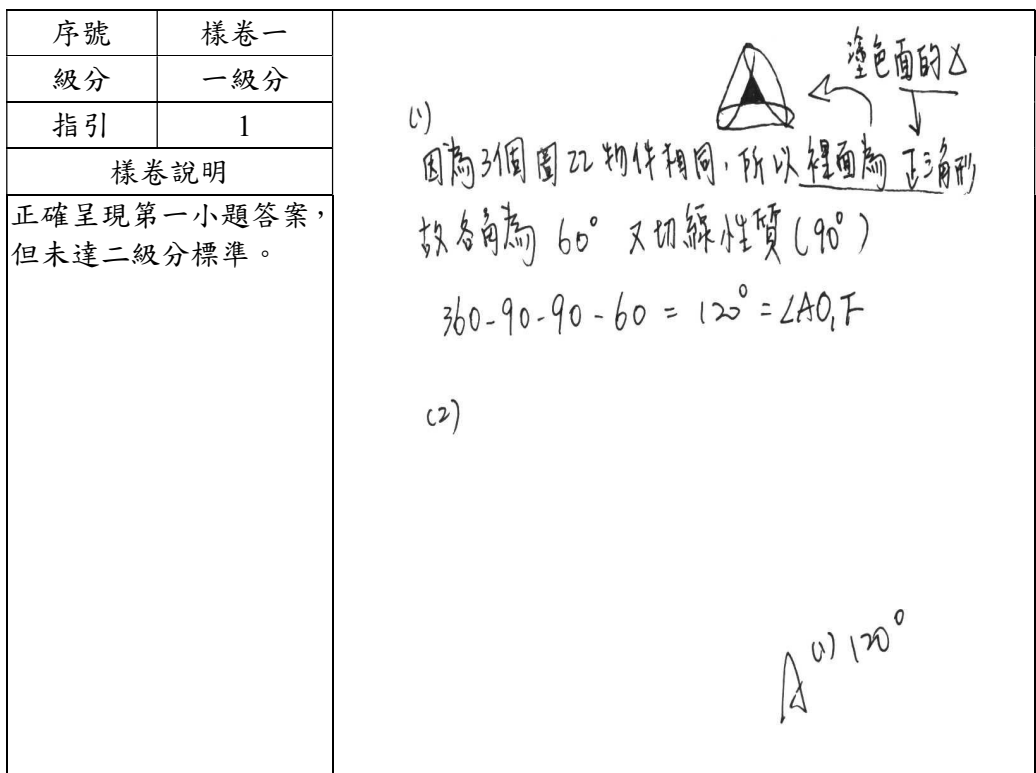 序號 樣卷一
級分 一級分
指引 1
樣卷說明
正確呈現第一小題答案，
但未達二級分標準。
塗色面的△
(1)
因為3個圈22物件相同，所以裡面為正三角形
故各角為60° 又切線性質(90°)
360-90-90-60 = 120° = ∠AO₁F
(2)
A (1) 120°